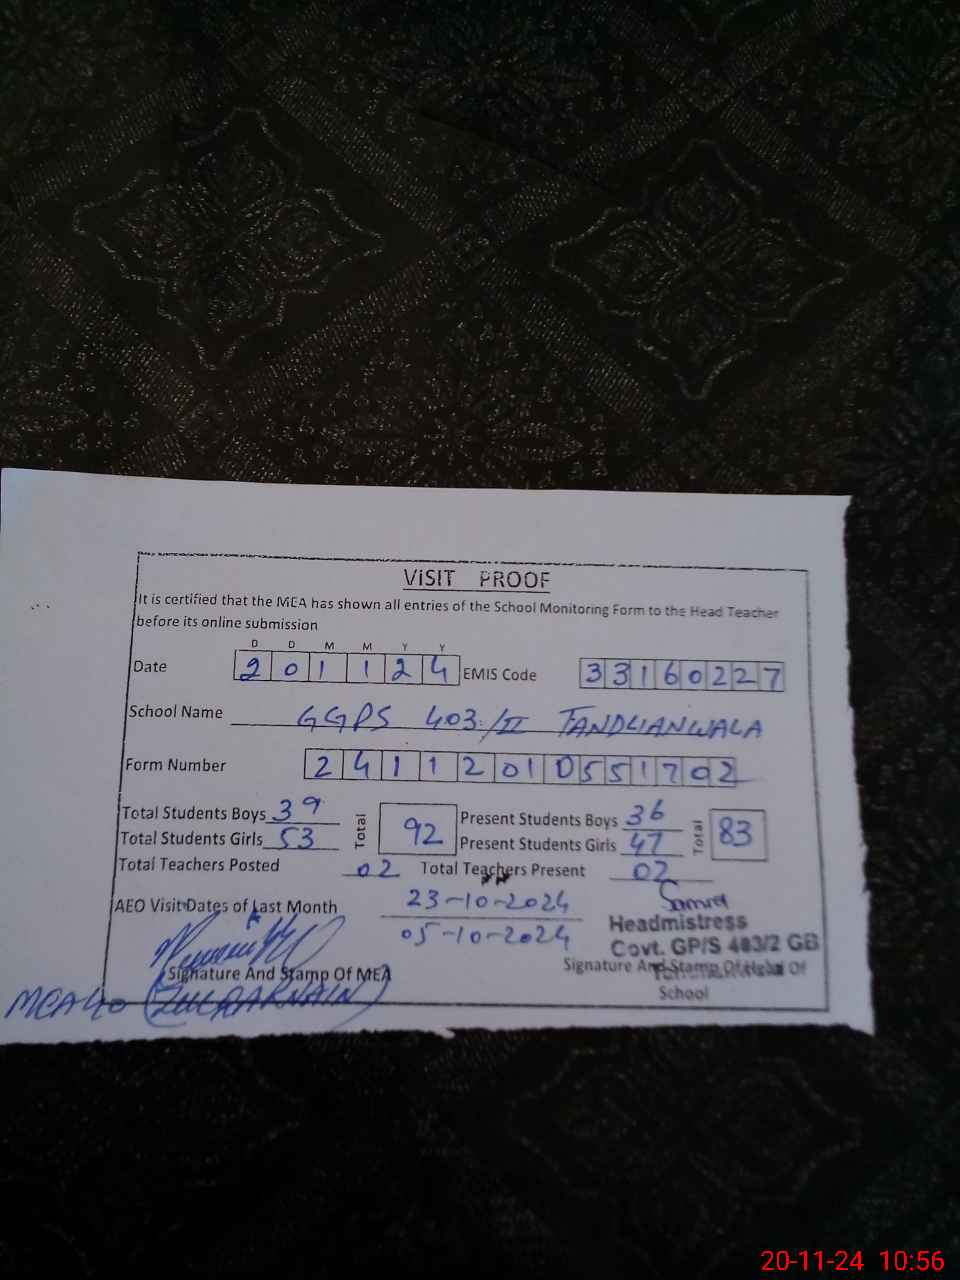 VISIT PROOF
It is certified that the MEA has shown all entries of the School Monitoring Form to the Head Teacher
before its online submission
D D M M Y Y
Date 2 0 1 1 2 4 EMIS Code 3 3 1 6 0 2 2 7
School Name GGPS 403/II TANDLIANWALA
Form Number 2 4 1 1 2 0 1 0 5 5 1 7 0 2
Total Students Boys 39 Total 92 Present Students Boys 36 Total 83
Total Students Girls 53 Present Students Girls 47
Total Teachers Posted 02 Total Teachers Present 02
AEO Visit Dates of Last Month 23-10-2024
05-10-2024
Headmistress
Govt. GP/S 403/2 GB
Signature And Stamp Of MEA Signature And Stamp Of Head Of
School
MEA 40 (ZULQARNAIN)
20-11-24 10:56